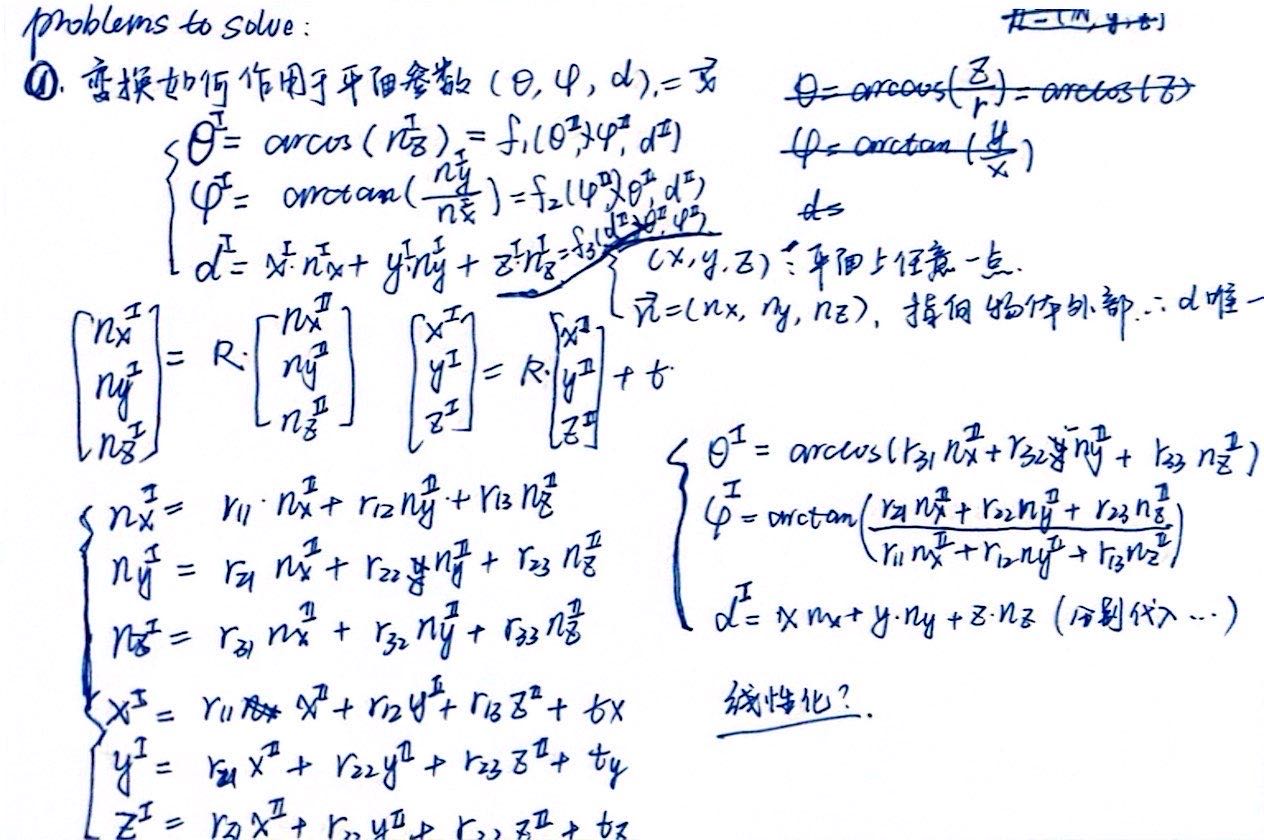 problems to solve:
①. 变换如何作用于平面参数 (θ, φ, d).=x⃗
θ^I = arccos(n_z^I) = f₁(θ^II, φ^II, d^II)
φ^I = arctan(n_y^I / n_x^I) = f₂(φ^II, θ^II, d^II)
d^I = x^I·n_x^I + y^I·n_y^I + z^I·n_z^I = f₃(d^II, θ^II, φ^II)
θ = arccos(z/r) = arccos(z)
φ = arctan(y/x)
d=
(x, y, z) : 平面上任意一点.
n⃗ = (nx, ny, nz), 指向物体外部. ∴ d 唯一
[n_x^I n_y^I n_z^I] = R·[n_x^II n_y^II n_z^II] [x^I y^I z^I] = R·[x^II y^II z^II] + t
n_x^I = r₁₁·n_x^II + r₁₂ n_y^II + r₁₃ n_z^II
n_y^I = r₂₁ n_x^II + r₂₂ n_y^II + r₂₃ n_z^II
n_z^I = r₃₁ n_x^II + r₃₂ n_y^II + r₃₃ n_z^II
x^I = r₁₁ x^II + r₁₂ y^II + r₁₃ z^II + tx
y^I = r₂₁ x^II + r₂₂ y^II + r₂₃ z^II + ty
z^I = r₃₁ x^II + r₃₂ y^II + r₃₃ z^II + tz
θ^I = arccos(r₃₁ n_x^II + r₃₂ n_y^II + r₃₃ n_z^II)
φ^I = arctan((r₂₁ n_x^II + r₂₂ n_y^II + r₂₃ n_z^II) / (r₁₁ n_x^II + r₁₂ n_y^II + r₁₃ n_z^II))
d^I = x nx + y·ny + z·nz (分别代入 …)
线性化?.